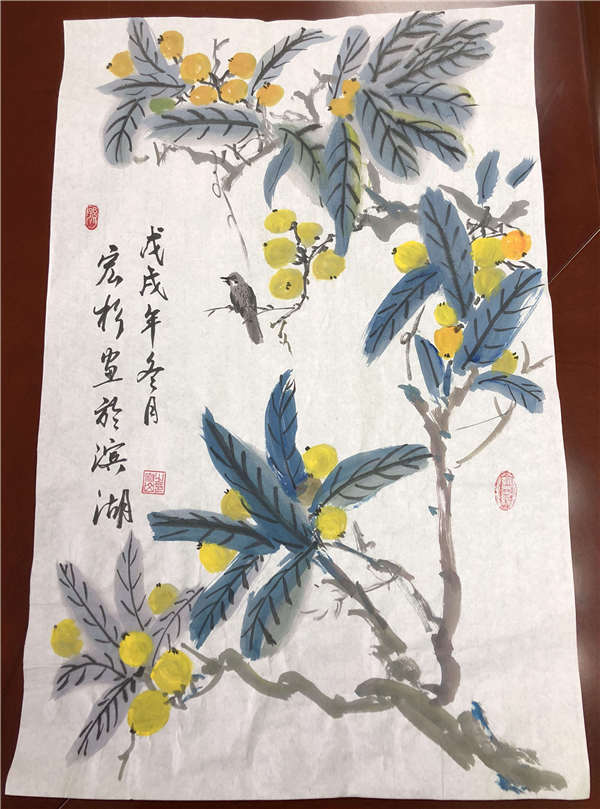 戊戌年冬月
宏杉画於滨湖